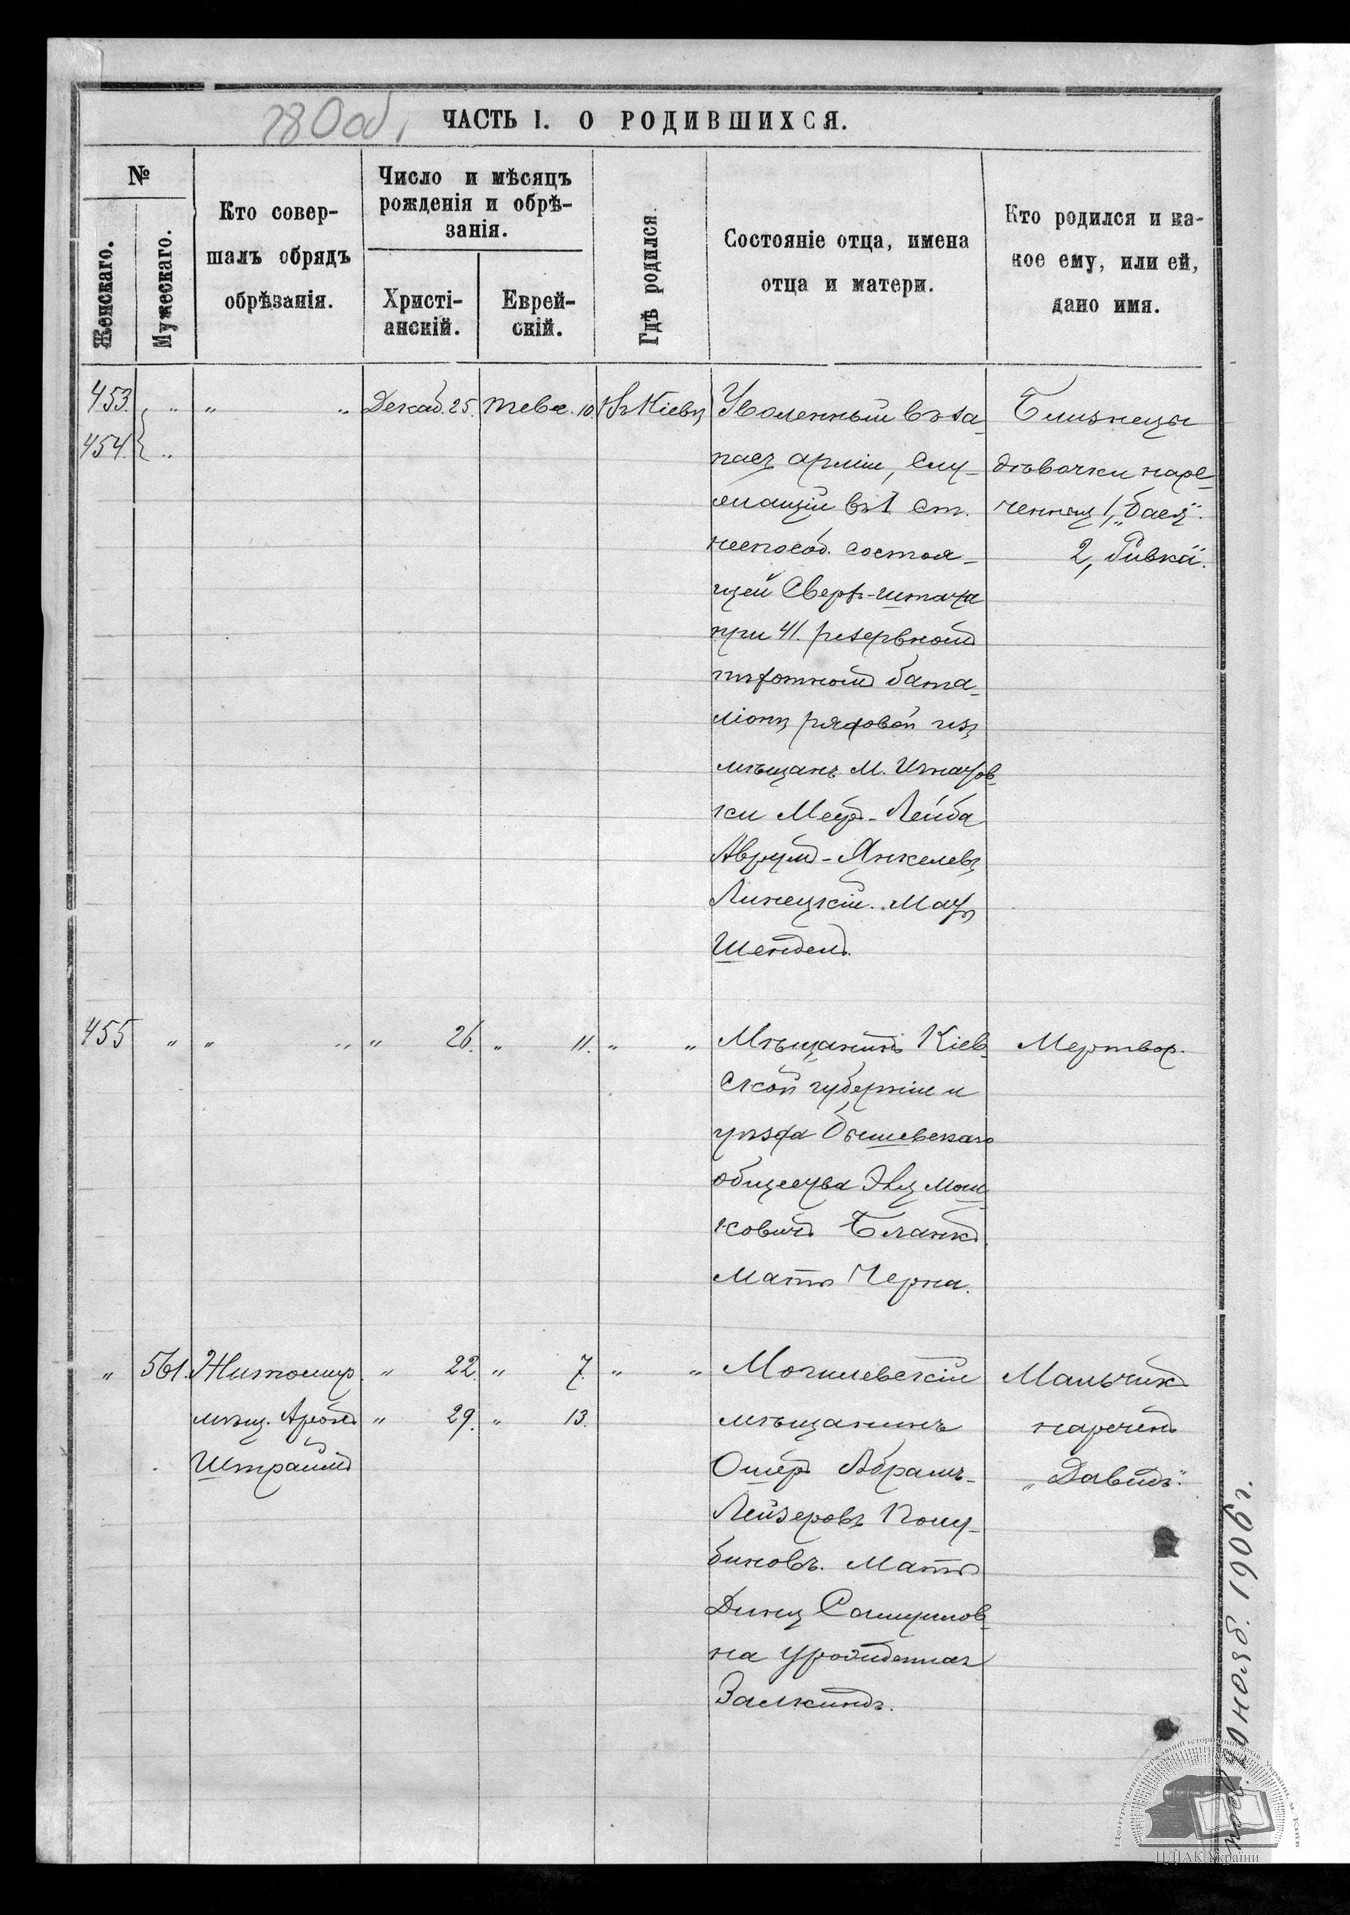 280об.
ЧАСТЬ I. О РОДИВШИХСЯ.
№
Женскаго.
Мужескаго.
Кто совер-
шалъ обрядъ
обрѣзанія.
Число и мѣсяцъ
рожденія и обрѣ-
занія.
Христі-
анскій.
Еврей-
скій.
Гдѣ родился.
Состояніе отца, имена
отца и матери.
Кто родился и ка-
кое ему, или ей,
дано имя.
453. „ „ „ Декаб. 25. теве. 10. Въ Кіевѣ
454. „
Уволенный въ за-
пасъ арміи, слу-
жащій въ 1 ст.
неспособ. состоя-
щей Сверх-штата
при 41. резервномъ
пѣхотномъ бата-
ліонѣ рядовой изъ
мѣщанъ м. Игнатов-
ки Меер-Лейба
Аврум-Янкелевъ
Линецкій. Мать
Шендель.
Близнецы
дѣвочки наре-
ченныя 1, „Бася".
2, „Ривка".
455 „ „ „ „ 26. „ 11. „ „
Мѣщанинъ Кіев-
ской губерніи и
уѣзда Бышевскаго
общества Эля Мош-
ковичъ Бланкъ.
Мать Черна.
Мертвор.
„ 561. Житомир. „ 22. „ 7. „ „
мѣщ. Аронъ „ 29. „ 13.
Штраймъ
Могилевскій
мѣщанинъ
Ошеръ Абрамъ-
Лейзеровъ Голу-
биновъ. Мать
Дина Самуилов-
на урожденная
Залкиндъ.
Мальчикъ
нареченъ
„Давидъ".
20 нояб. 1906 г.
ЦДІАК України